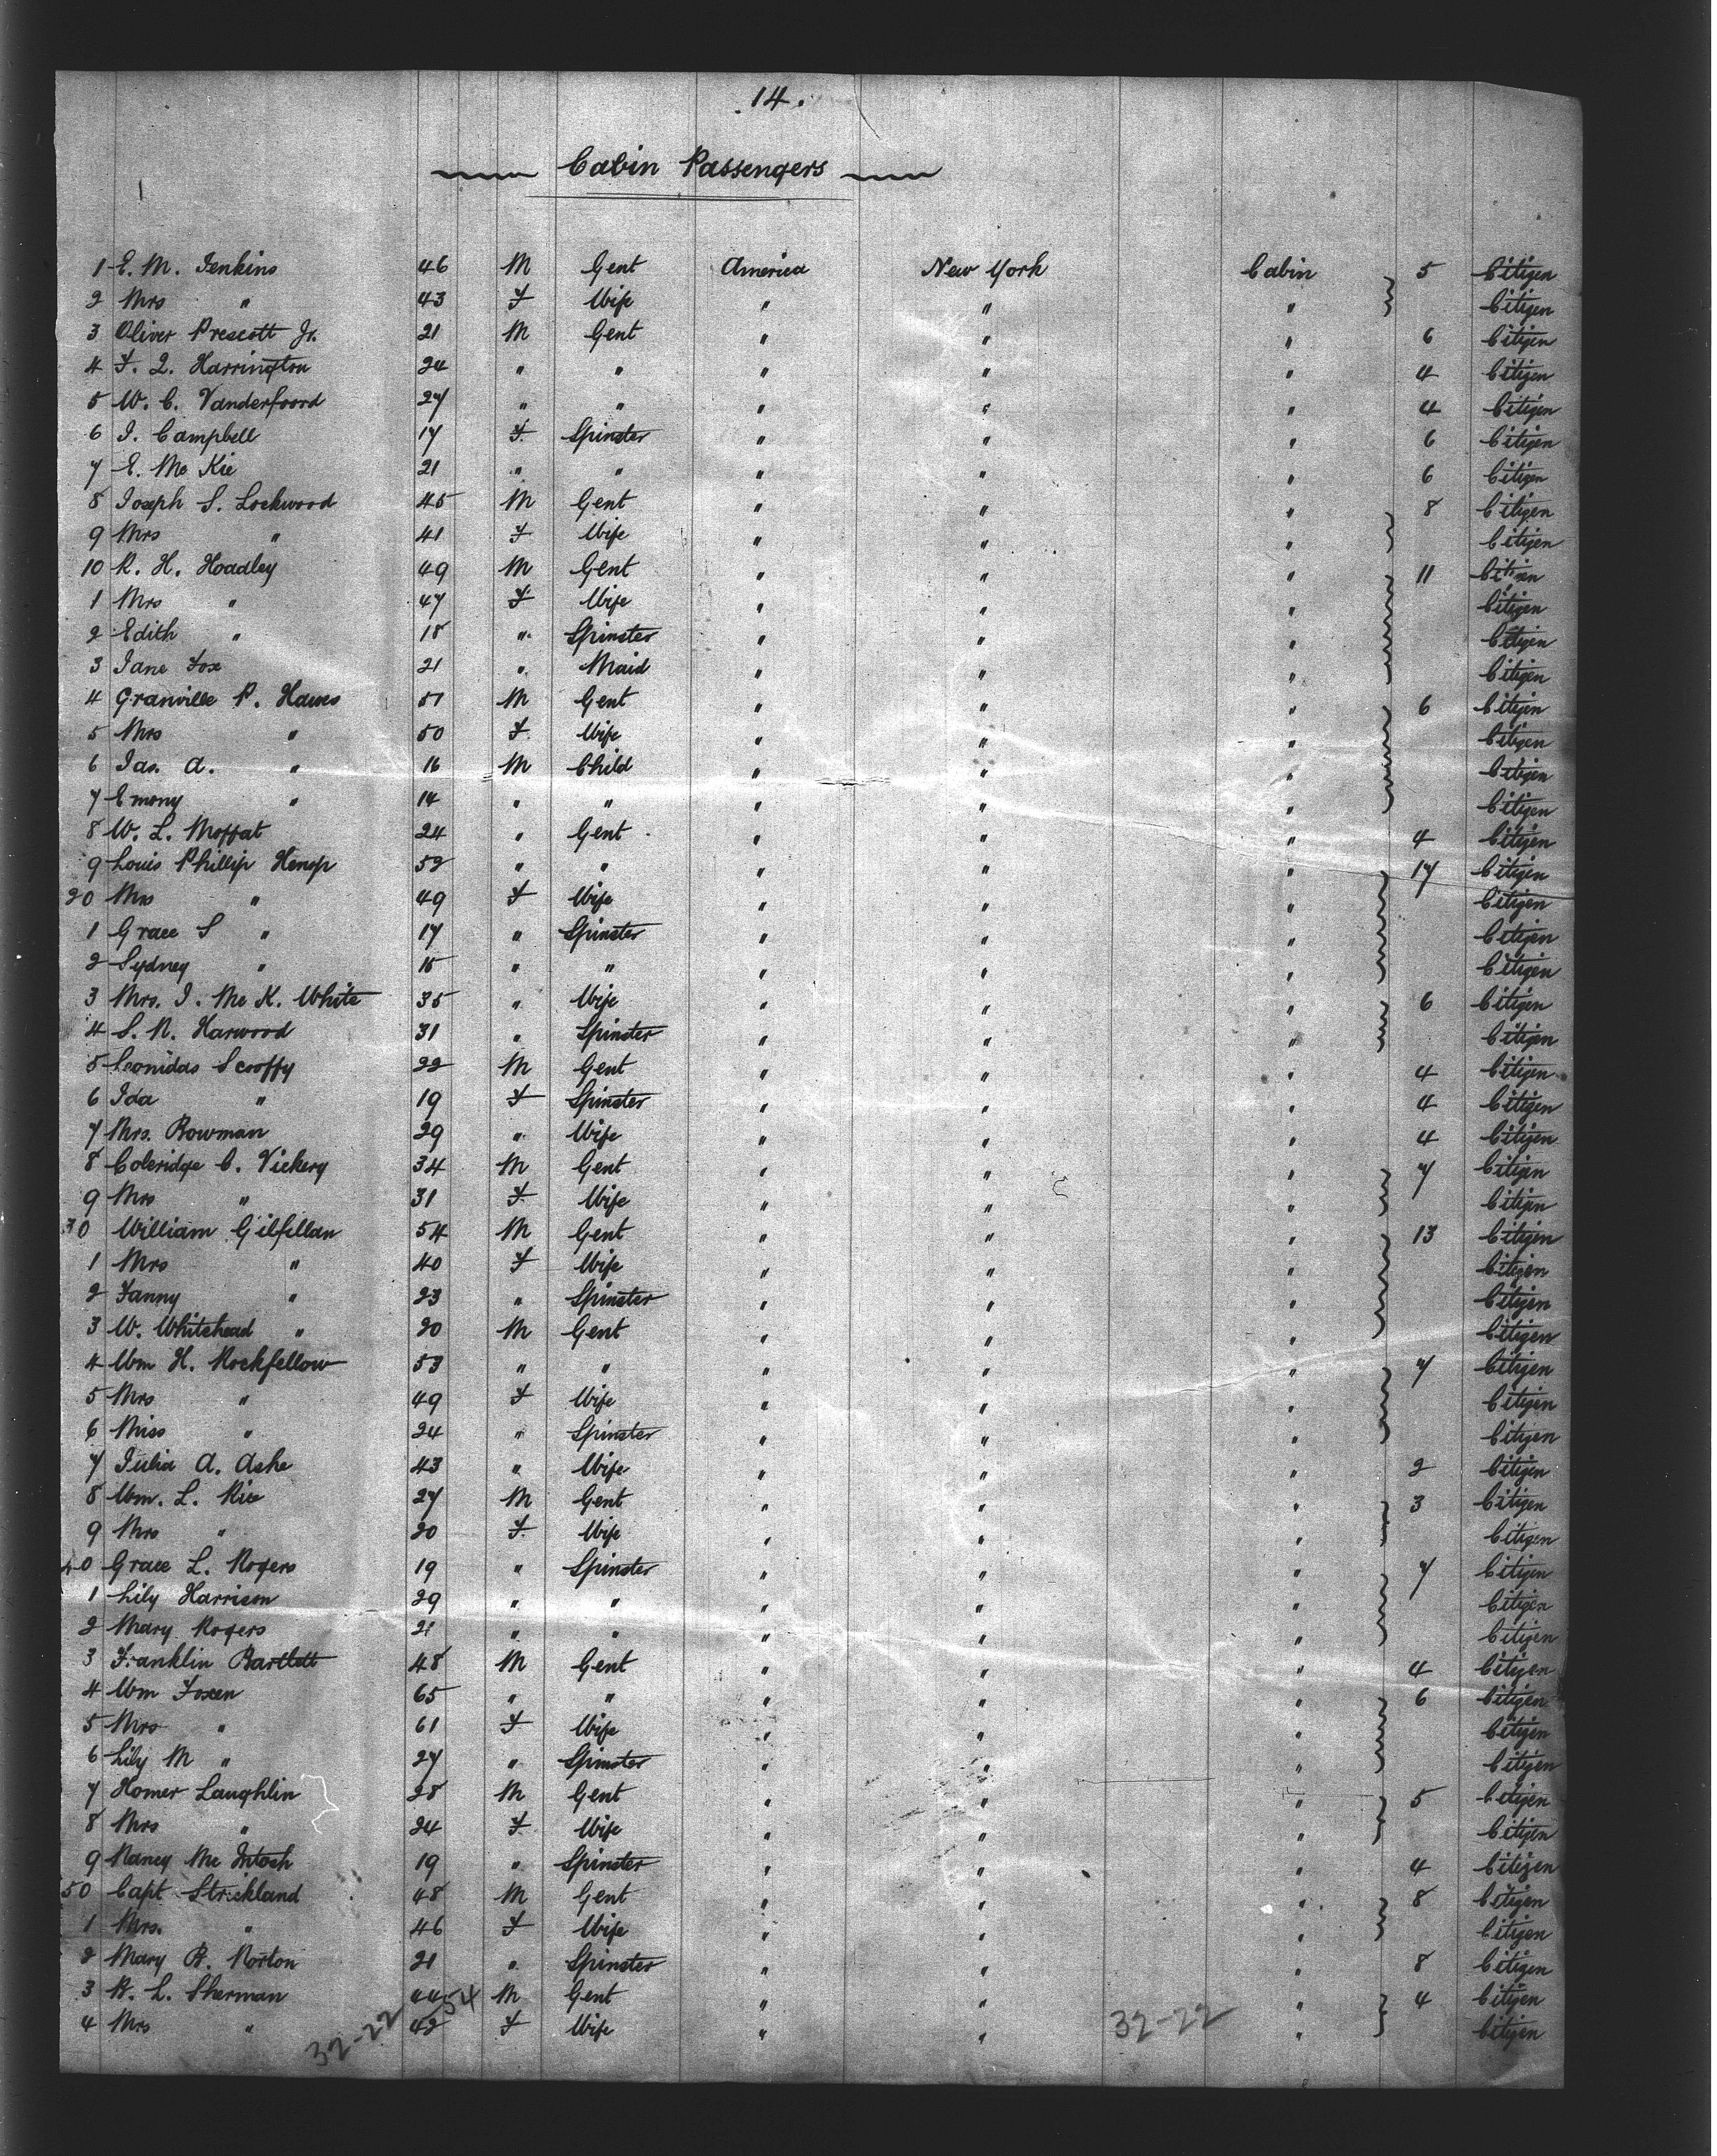 14.
Cabin Passengers
1 E. M. Jenkins 46 M Gent America New York Cabin 5 Citizen
2 Mrs " 43 F Wife " " " Citizen
3 Oliver Prescott Jr. 21 M Gent " " " 6 Citizen
4 F. L. Harrington 24 " " " " " 4 Citizen
5 W. C. Vanderfoord 27 " " " " " 4 Citizen
6 J. Campbell 17 F. Spinster " " " 6 Citizen
7 E. Mc Kie 21 " " " " " 6 Citizen
8 Joseph S. Lockwood 45 M Gent " " " 8 Citizen
9 Mrs " 41 F Wife " " " Citizen
10 R. H. Hoadley 49 M Gent " " " 11 Citizen
1 Mrs " 47 F Wife " " " Citizen
2 Edith " 18 " Spinster " " " Citizen
3 Jane Fox 21 " Maid " " " Citizen
4 Granville P. Hawes 51 M Gent " " " 6 Citizen
5 Mrs " 50 F. Wife " " " Citizen
6 Jas. A. " 16 M Child " " " Citizen
7 Emony " 14 " " " " " Citizen
8 W. L. Moffat 24 " Gent " " " 4 Citizen
9 Louis Phillip Henop 52 " " " " " 17 Citizen
20 Mrs " 49 F Wife " " " Citizen
1 Grace S " 17 " Spinster " " " Citizen
2 Sydney " 15 " " " " " Citizen
3 Mrs. J. Mc K. White 35 " Wife " " " 6 Citizen
4 S. N. Harwood 31 " Spinster " " " Citizen
5 Leonidas Scooffy 22 M Gent " " " 4 Citizen
6 Ida " 19 F Spinster " " " 4 Citizen
7 Mrs. Bowman 29 " Wife " " " 4 Citizen
8 Coleridge C. Vickery 34 M Gent " " " 7 Citizen
9 Mrs " 31 F. Wife " " " Citizen
30 William Gilfillan 54 M Gent " " " 13 Citizen
1 Mrs " 40 F Wife " " " Citizen
2 Fanny " 23 " Spinster " " " Citizen
3 W. Whitehead " 20 M Gent " " " Citizen
4 Wm H. Rockfellow 53 " " " " " 7 Citizen
5 Mrs " 49 F Wife " " " Citizen
6 Miss " 24 " Spinster " " " Citizen
7 Julia A. Ashe 43 " Wife " " " 2 Citizen
8 Wm. L. Rice 27 M Gent " " " 3 Citizen
9 Mrs " 20 F. Wife " " " Citizen
40 Grace L. Rogers 19 " Spinster " " " 7 Citizen
1 Lily Harrison 29 " " " " " Citizen
2 Mary Rogers 21 " " " " " Citizen
3 Franklin Bartlett 48 M Gent " " " 4 Citizen
4 Wm Foxen 65 " " " " " 6 Citizen
5 Mrs " 61 F Wife " " " Citizen
6 Lily M " 27 " Spinster " " " Citizen
7 Homer Laughlin 28 M Gent " " " 5 Citizen
8 Mrs " 24 F. Wife " " " Citizen
9 Nancy Mc Intosh 19 " Spinster " " " 4 Citizen
50 Capt Strickland 48 M Gent " " " 8 Citizen
1 Mrs. " 46 F Wife " " " Citizen
2 Mary B. Norton 21 " Spinster " " " 8 Citizen
3 B. L. Sherman 44 54 M Gent " " " 4 Citizen
4 Mrs " 42 F Wife " " " Citizen
32-22 32-22